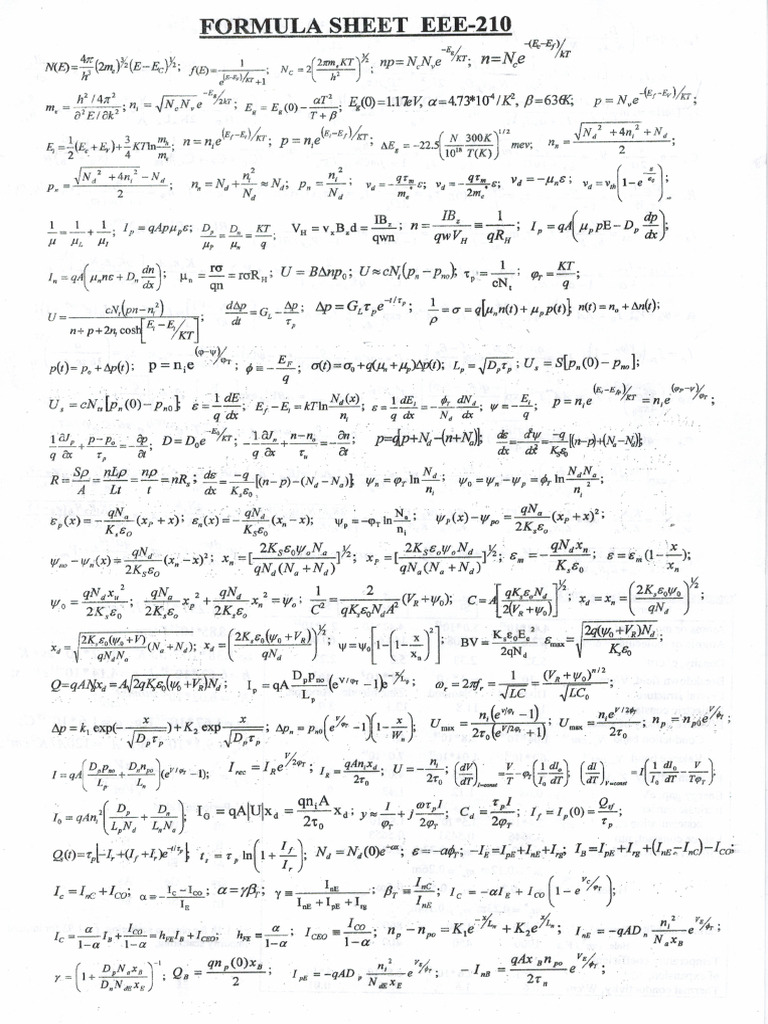 FORMULA SHEET EEE-210
N(E)=4π/h³ (2mₑ)^3/2 (E−E_C)^1/2 ; f(E)= 1/(e^(E−E_f)/KT +1) ; N_C = 2(2πmₑKT/h²)^1/2 ; np=N_cN_v e^−E_g/KT ; n=N_c e^−(E_c−E_f)/kT
mₑ = (h²/4π²)/(∂²E/∂k²) ; n_i = √(N_cN_v) e^−E_g/2kT ; E_g = E_g(0) − αT²/(T+β) ; E_g(0)=1.17eV, α=4.73*10⁻⁴/K, β=636K; p = N_v e^−(E_f−E_v)/KT ;
E_i = 1/2(E_c+E_v)+3/4 KT ln m_h/mₑ ; n = n_i e^(E_f−E_i)/KT ; p = n_i e^(E_i−E_f)/KT ; ΔE_g = −22.5(N/10¹⁸ 300K/T(K))^1/2 mev; n_n = (√(N_d²+4n_i²)+N_d)/2 ;
p_n = (√(N_d²+4n_i²)−N_d)/2 ; n_n = N_d + n_i²/N_d ≈ N_d; p_n = n_i²/N_d ; v_d = −qτ_m/mₑ* ε; v_d = −qτ_m/2mₑ* ε; v_d = −μ_n ε; v_d = v_th(1−e^ε/ε_c) ;
1/μ = 1/μ_L + 1/μ_I ; I_p = qApμ_pε; D_p/μ_p = D_n/μ_n = KT/q ; V_H = v_xB_zd = IB_z/qwn ; n = IB_z/qwV_H ≡ 1/qR_H ; I_p = qA(μ_p pE − D_p dp/dx);
I_n = qA(μ_n nε + D_n dn/dx) ; μ_n = rσ/qn = rσR_H ; U = BΔnp₀ ; U ≈ cN_t(p_n − p_no); τ_p = 1/cN_t ; φ_T = KT/q ;
U = cN_t(pn−n_i²)/(n+p+2n_i cosh[(E_t−E_i)/KT]) ; dΔp/dt = G_L − Δp/τ_p ; Δp = G_Lτ_p e^−t/τ_p ; 1/ρ = σ = q[μ_n n(t) + μ_p p(t)]; n(t) = n_o + Δn(t);
p(t) = p_o + Δp(t) ; p = n_i e^(φ−ψ)/φ_T ; φ = −E_F/q ; σ(t) = σ₀ + q(μ_n + μ_p)Δp(t) ; L_p = √(D_pτ_p) ; U_s = S[p_n(0) − p_no] ;
U_s = cN_ts[p_n(0) − p_n0] ; ε = 1/q dE/dx ; E_f − E_i = kT ln N_d(x)/n_i ; ε = 1/q dE_i/dx = −φ_T/N_d dN_d/dx ; ψ = −E_i/q ; p = n_i e^(E_i−E_fp)/KT = n_i e^(φ_p−ψ)/φ_T ;
1/q ∂J_p/∂x + (p−p_o)/τ_p = −∂p/∂t ; D = D₀e^−E₀/KT ; −1/q ∂J_n/∂x + (n−n_o)/τ_n = −∂n/∂t ; ρ=q[p+N_d−(n+N_a)]; dε/dx = −d²ψ/dx² = −q/K_sε₀ [(n−p)+(N_a−N_d)];
R = Sρ/A = nLρ/Lt = nρ/t = nR_s ; dε/dx = −q/K_sε₀ [(n−p)−(N_d−N_a)] ; ψ_n = φ_T ln N_d/n_i ; ψ₀ = ψ_n − ψ_p = φ_T ln N_dN_a/n_i² ;
ε_p(x) = −qN_a/K_sε_O (x_P + x) ; ε_n(x) = −qN_d/K_sε₀ (x_n − x); ψ_p = −φ_T ln N_a/n_i ; ψ_P(x) − ψ_po = qN_a/2K_Sε_o (x_P + x)² ;
ψ_no − ψ_n(x) = qN_d/2K_Sε_O (x_n − x)² ; x_n = [2K_Sε₀ψ_oN_a/qN_d(N_a+N_d)]^1/2 ; x_P = [2K_Sε_oψ_oN_d/qN_a(N_a+N_d)]^1/2 ; ε_m = −qN_dx_n/K_sε₀ ; ε = ε_m(1 − x/x_n) ;
ψ₀ = qN_dx_n²/2K_sε₀ ; qN_a/2K_sε_o x_p² + qN_d/2K_sε_o x_n² = ψ_o ; 1/C² = 2/qK_sε₀N_dA² (V_R + ψ₀); C = A[qK_sε₀N_d/2(V_R+ψ₀)]^1/2 ; x_d = x_n = (2K_sε₀ψ₀/qN_d)^1/2 ;
x_d = √(2K_sε₀(ψ₀+V)/qN_dN_a (N_a+N_d)) ; x_d = (2K_sε₀(ψ₀+V_R)/qN_d)^1/2 ; ψ = ψ₀[1−(1−x/x_n)²] ; BV = K_sε₀E_c²/2qN_d ε_max = √(2q(ψ₀+V_R)N_d/K_sε₀) ;
Q=qAN_dx_d = A√(2qK_sε₀(ψ₀+V_R)N_d) ; I_p = qA D_pp_no/L_p (e^V/φ_T − 1)e^−x/L_p ; ω_r = 2πf_r = 1/√LC = (V_R+ψ₀)^n/2/√LC₀ ;
Δp = k₁ exp(−x/√(D_pτ_p)) + K₂ exp x/√(D_pτ_p) ; Δp_n = p_n0(e^V/φ_T −1)(1 − x/W_n) ; U_max = n_i(e^V/φ_t −1)/2τ₀(e^V/2φ_T +1) ; U_max = n_i e^V/2φ_T/2τ₀ ; n_p = n_p0 e^V/φ_T ;
I = qA(D_pp_no/L_p + D_nn_po/L_n)(e^V/φ_T −1); I_rec = I_R e^V/2φ_T ; I_R = qAn_ix_d/2τ₀ ; U = −n_i/2τ₀ ; (dV/dT)_I=const = V/T − φ_T(1/I₀ dI₀/dT) ; (dI/dT)_V=const = I(1/I₀ dI₀/dT − V/Tφ_T)
I₀ = qAn_i²(D_p/L_pN_d + D_n/L_nN_a) ; I_G = qA|U|x_d = qn_iA/2τ₀ x_d ; y ≈ I/φ_T + j ωτ_pI/2φ_T ; C_d = τ_pI/2φ_T ; I_f = I_p(0) = Q_sf/τ_p ;
Q_s(t) = τ_p[−I_r + (I_f + I_r)e^−t/τ_p] ; t_s = τ_p ln(1 + I_f/I_r) ; N_d = N_d(0)e^−αx ; ε = −αφ_T; −I_E = I_pE + I_nE + I_rg; I_B = I_pE + I_rg + (I_nE − I_nC) − I_CO;
I_c = I_nC + I_CO ; α = −(I_C − I_CO)/I_E ; α = γβ_T ; γ ≡ I_nE/(I_nE + I_pE + I_rg) ; β_T ≡ I_nC/I_nE ; I_C = −αI_E + I_CO(1 − e^V_C/φ_T) ;
I_C = α/(1−α) I_B + I_CO/(1−α) = h_FEI_B + I_CEO; h_FE ≡ α/(1−α) ; I_CEO ≡ I_CO/(1−α) ; n_p − n_po = K₁e^−x/L_n + K₂e^x/L_n ; I_nE = −qAD_n n_i²/N_ax_B e^V_E/φ_T ;
γ = (1 + D_pN_ax_B/D_nN_dEx_E)⁻¹ ; Q_B = qn_p(0)x_B/2 ; I_pE = −qAD_p n_i²/N_dEx_E e^V_E/φ_T ; −I_nB = qAx_Bn_po/2τ_n e^V_E/φ_T ;